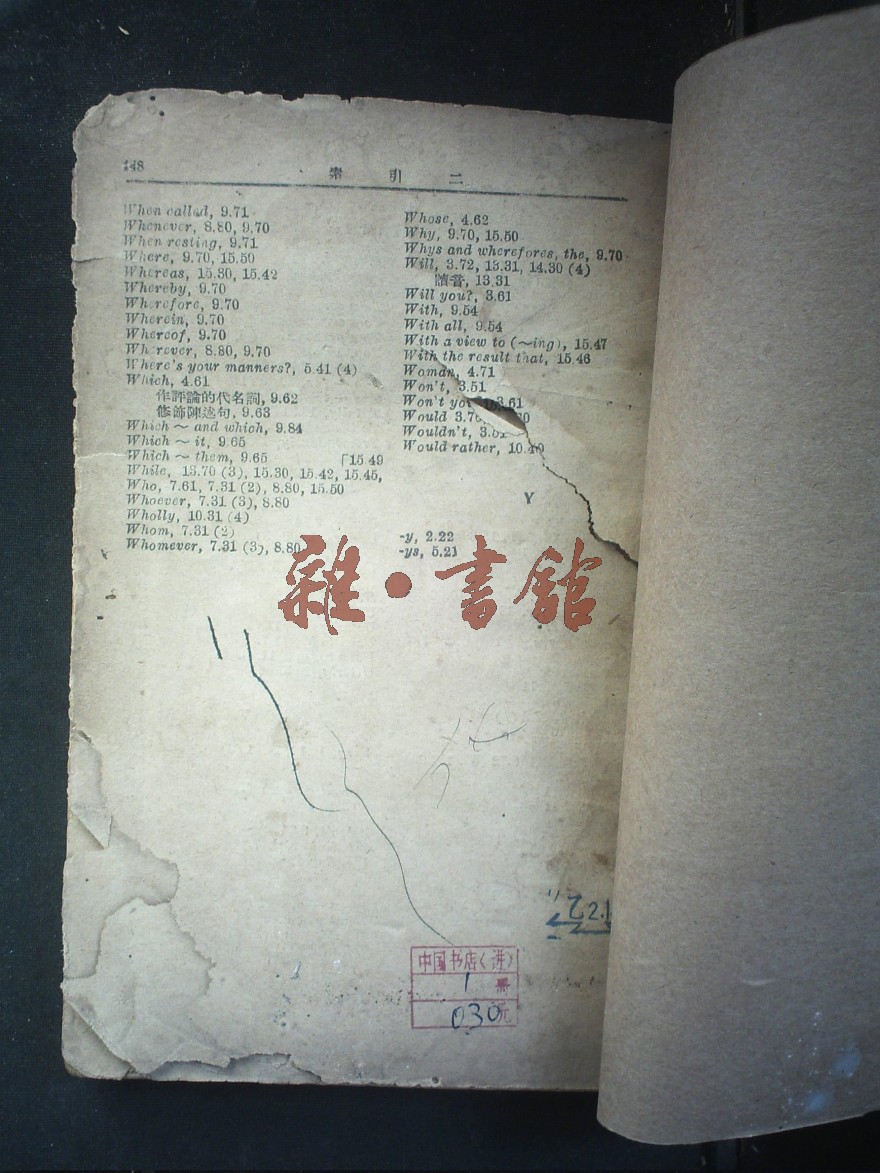 148
索 引 二
When called, 9.71
Whenever, 8.80, 9.70
When resting, 9.71
Where, 9.70, 15.50
Whereas, 15.30, 15.42
Whereby, 9.70
Wherefore, 9.70
Wherein, 9.70
Whereof, 9.70
Wherever, 8.80, 9.70
Where's your manners?, 5.41 (4)
Which, 4.61
作評論的代名詞, 9.62
修飾陳述句, 9.63
Which ~ and which, 9.84
Which ~ it, 9.65
Which ~ them, 9.65 「15.49
While, 13.70 (3), 15.30, 15.42, 15.45,
Who, 7.61, 7.31 (2), 8.80, 15.50
Whoever, 7.31 (3), 8.80
Wholly, 10.31 (4)
Whom, 7.31 (2)
Whomever, 7.31 (3), 8.80
Whose, 4.62
Why, 9.70, 15.50
Whys and wherefores, the, 9.70
Will, 3.72, 13.31, 14.30 (4)
讀音, 13.31
Will you?, 3.61
With, 9.54
With all, 9.54
With a view to (~ing), 15.47
With the result that, 15.46
Woman, 4.71
Won't, 3.51
Won't 3.61
Would
Wouldn't,
Would rather, 10.40
Y
-y, 2.22
-ys, 5.21
雜·書館
中国书店(进)
1 册
030元